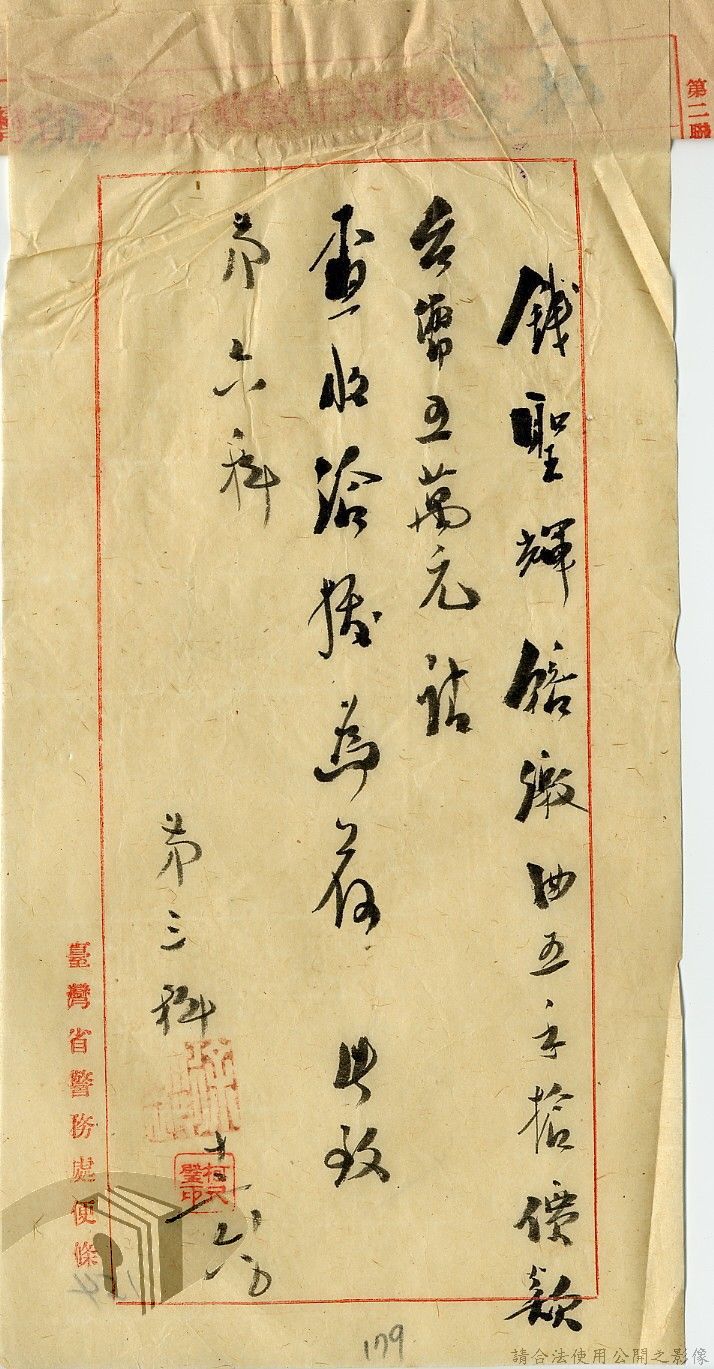 第二聯
錢聖輝賠繳四五手搶價款
台幣五萬元請
查收給據為荷 此致
第六科
第三科
柯尺璧印
臺灣省警務處便條
154
179
請合法使用公開之影像